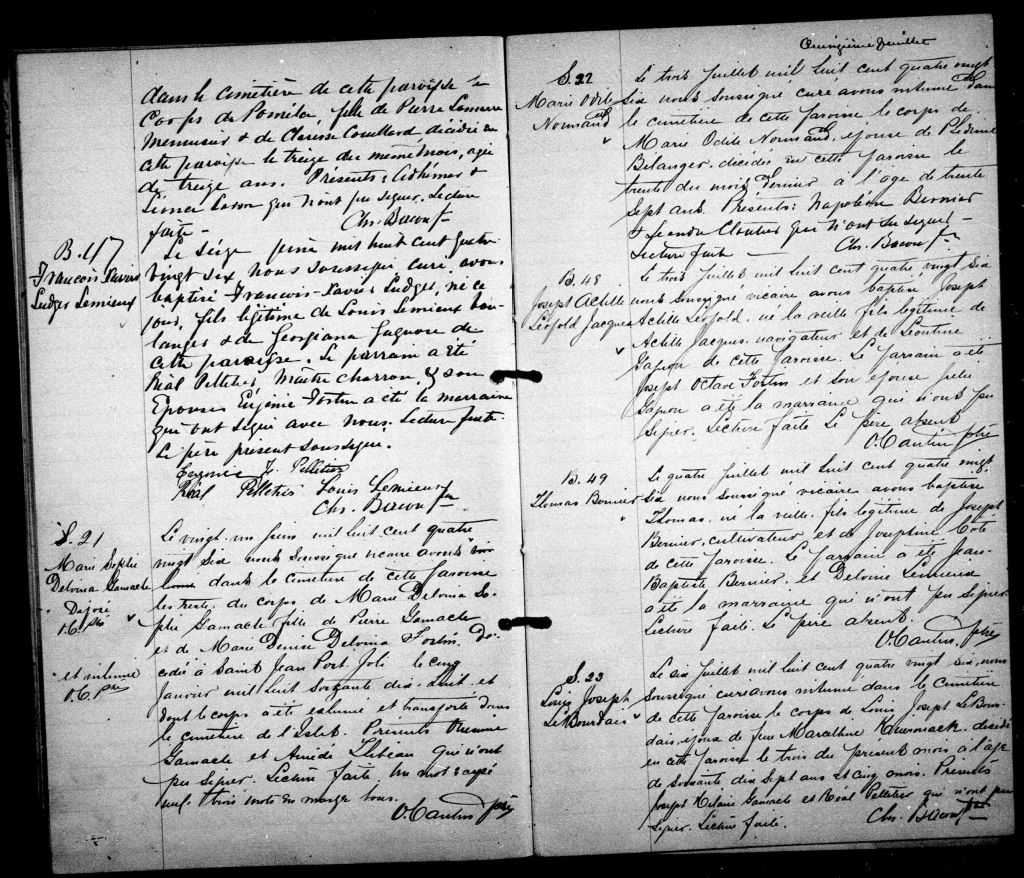 dans le cimetière de cette paroisse le
Corps de Pomela, fille de Pierre Lemieux
Menuisier & de Clarisse Couillard décédée en
cette paroisse le treize du même mois, agée
de treize ans. Présents: Adhémar &
Caron qui n'ont pu signer. Lecture
faite — Chs. Bacon ptre
B. 47
Francois Xavier
Ludger Lemieux
Le Seize juin mil huit cent quatre
vingt six nous soussigné curé, avons
baptisé Francois-Xavier Ludger, né ce
jour, fils légitime de Louis Lemieux bou-
langer & de Georgiana Gagnon de
cette paroisse. Le parrain a été
Réal Pelletier, Maître charron, & son
Epouse Eugénie Fortin a été la marraine
qui ont signé avec nous. Lecture faite.
Le père présent soussigné.
Eugenie F. Pelletier
Réal Pelletier Louis Lemieux
Chs. Bacon ptre
S. 21
Marie Sophie
Delvina Gamache
Déposé
O.C. ptre
et inhumé
O.C. ptre
Le vingt-un juin mil huit cent quatre
vingt six nous soussigné vicaire avons
dans le cimetière de cette paroisse
les restes du corps de Marie Delvina So-
phie Gamache fille de Pierre Gamache
et de Marie Denise Delvina Fortin, dé-
cédée à Saint Jean Port Joli le cinq
Janvier mil huit soixante dix-huit et
dont le corps a été exhumé et transporté dans
le cimetière de l'Islet. Présents
Gamache et Amédé Thibeau qui n'ont
pu signer. Lecture faite. Un mot rayé
nul. trois mots en marge bons.
O. Cantin ptre
Quinzième feuillet
S. 22
Marie Odile
Normand
Le trois Juillet mil huit cent quatre vingt
six nous soussigné curé avons inhumé dans
le cimetière de cette paroisse le corps de
Marie Odile Normand, épouse de
Belanger, décédée en cette paroisse le
trente du mois dernier à l'age de trente
sept ans. Présents: Napoléon Bernier
& Cloutier qui n'ont su signer —
Lecture faite — Chs. Bacon ptre
B. 48
Joseph Achille
Léopold Jacques
Le trois Juillet mil huit cent quatre vingt six
nous soussigné vicaire avons baptisé Joseph
Achille Léopold, né la veille fils légitime de
Achille Jacques, navigateur et de Léontine
de cette paroisse. Le parrain a été
Joseph Octave Fortin et son épouse
a été la marraine qui n'ont pu
signer. Lecture faite Le père absent
O. Cantin ptre
B. 49
Thomas Bernier
Le quatre Juillet mil huit cent quatre vingt
six nous soussigné vicaire avons baptisé
Thomas, né la veille, fils légitime de Joseph
Bernier, cultivateur et de Josephine Coté
de cette paroisse. Le parrain a été Jean-
Baptiste Bernier, et Delvine Lemieux
a été la marraine qui n'ont pu signer.
Lecture faite. Le père absent.
O. Cantin ptre
S. 23
Louis Joseph
LeBourdais
Le six Juillet mil huit cent quatre vingt six, nous
soussigné curé avons inhumé dans le cimetière
de cette paroisse le corps de Louis Joseph Le Bour-
dais, époux de feue Marcelline décédé
en cette paroisse le trois du present mois à l'age
de soixante dix sept ans et cinq mois. Présents
Joseph Hilaire Gamache et Réal Pelletier qui n'ont pu
signer. Lecture faite. Chs. Bacon ptre